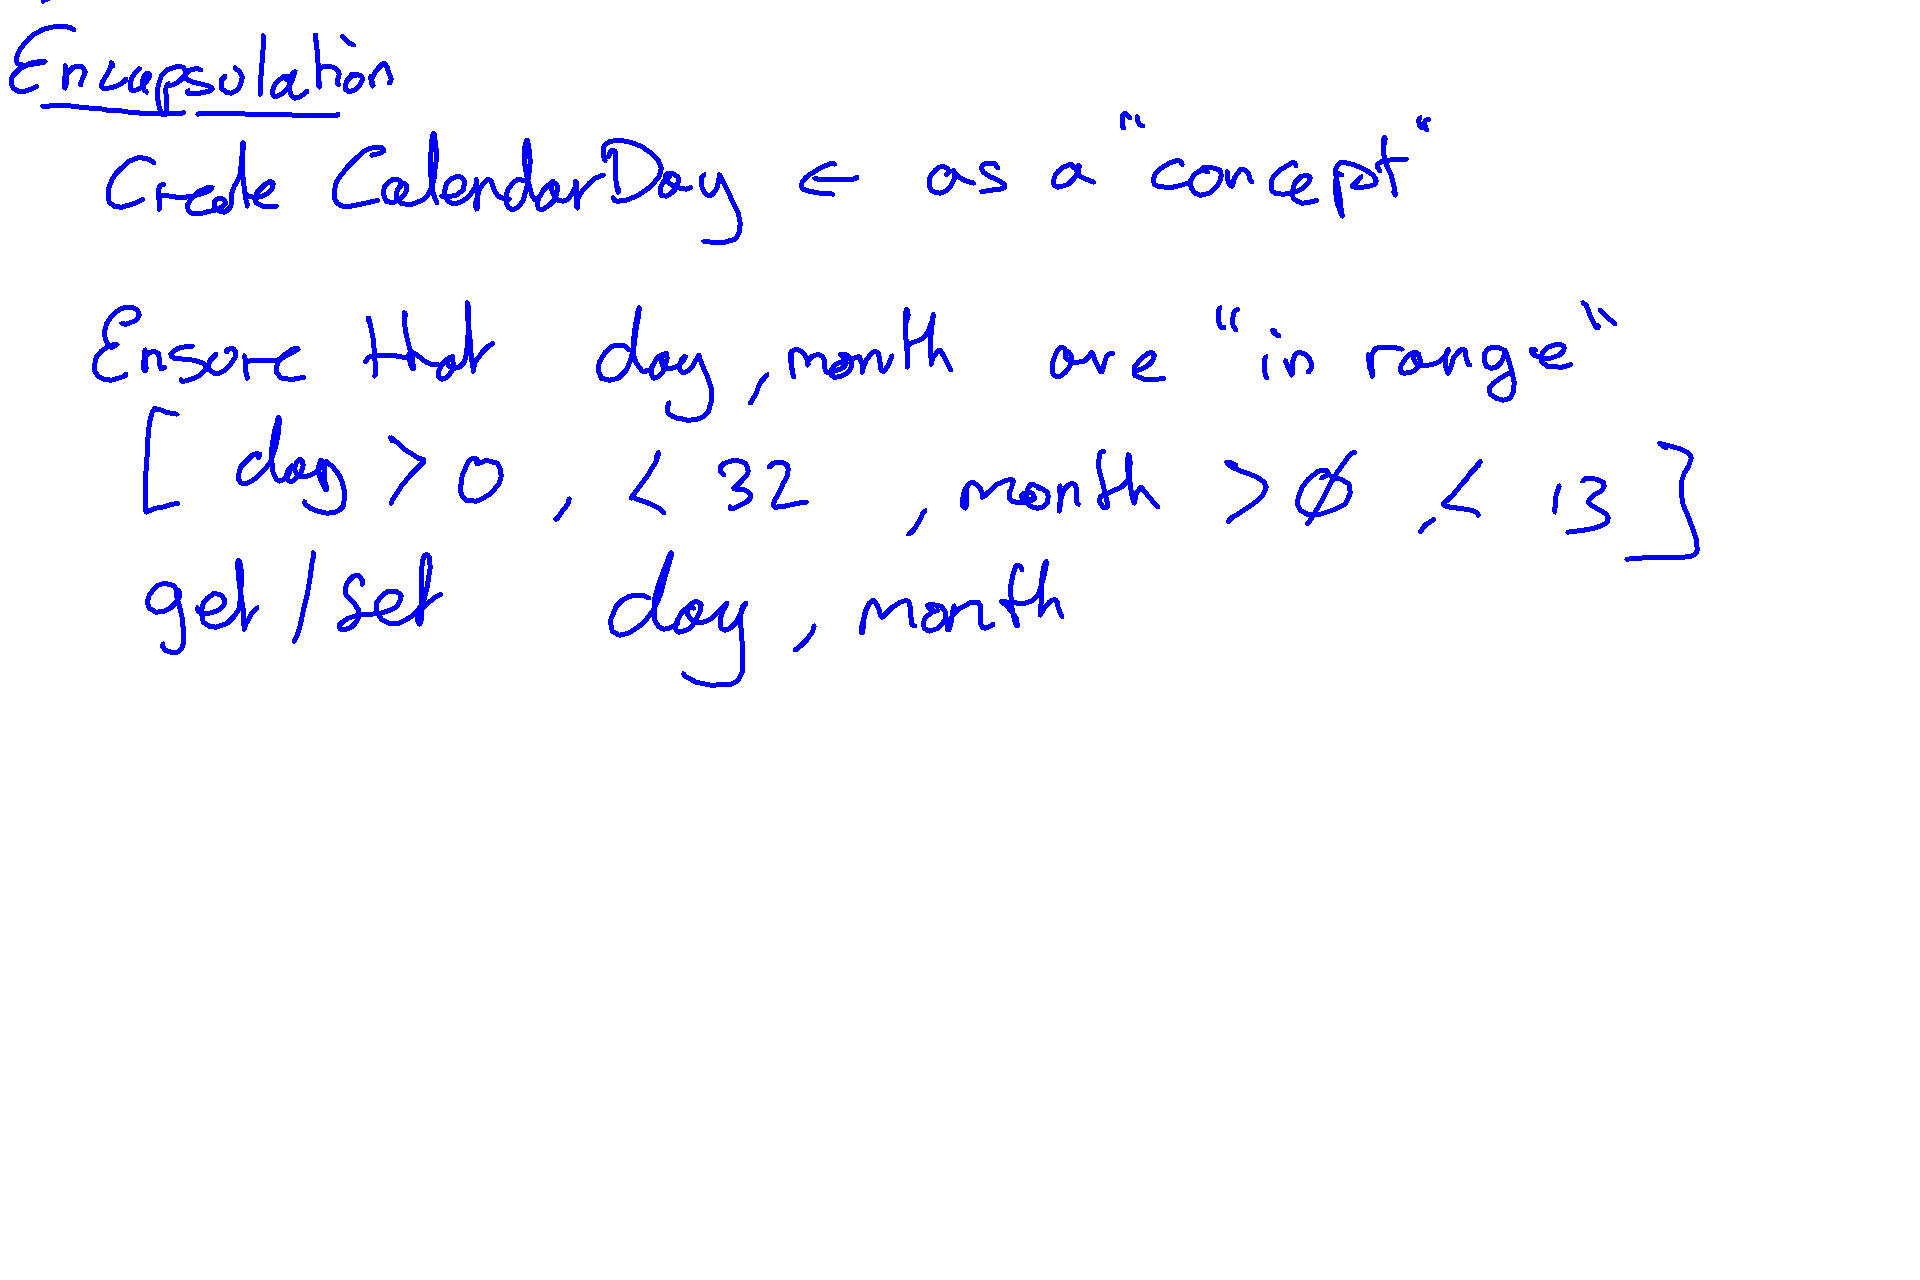 Encapsulation
Create CalendarDay ← as a "concept"
Ensure that day, month are "in range"
[ day > 0, < 32, month > 0, < 13 ]
get / set day, month